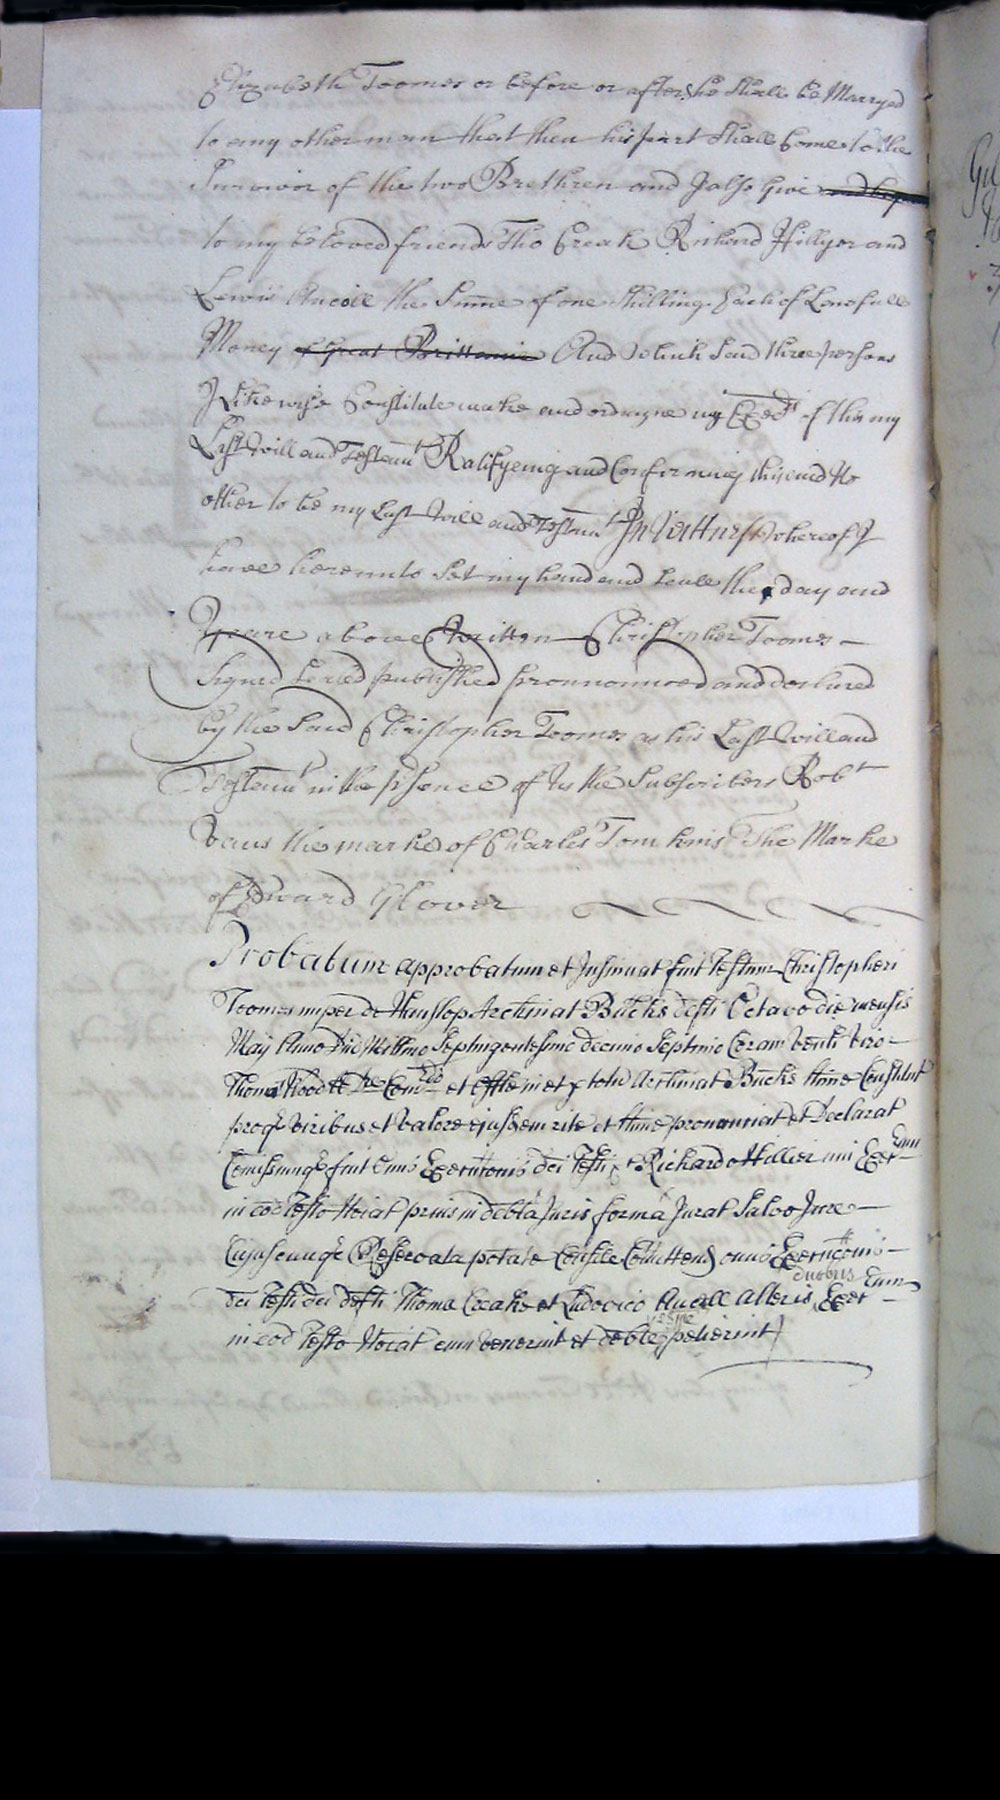 Elizabeth Toomes or before or after she Shall be Marryed
to any other man that then his part Shall Come to the
Survivor of the two Brethren and I also Give and beque
to my beloved friends Tho Creak Richard Hillyer and
Lewis Ancell the Sume of one Shilling Each of Lawfull
Money of Great Brittannie And which Said three persons
I likewise Constitute make and ordayne my Exec:rs of this my
Last Will and Testamt Ratifyeing and Confirming this and No
other to be my Last Will and Testamt In Wittness whereof I
have hereunto Set my hand and Seale the day and
Yeare above Written Christopher Toomes
Signed Sealed published pronounced and declared
by the Said Christopher Toomes as his Last Will and
Testamt in the psence of Us the Subscribers Robt
Vaus the marke of Charles Tomkins The Marke
of Edward Glover
Probatum approbatum et Insinuat fuit Testum Christopheri
Toomes nuper de Hanslop Archinat Bucks defti Octavo die mensis
Maij Anno Dni Millmo Septingentesimo decimo Septimo Coram venli viro
Thoma Wood et Offle in et p totu Archinat Bucks ttime Constitut
proq viribus et valore ejusdem rite et ttime pronunciat et Declarat
Comissaq fuit onus Executionis dci Testi Richardo Hillier uni Exer um
in eod Testo Noiat prius in debta Juris forma Jurat Salvo Jure
Cujuscunq Reservata potate Consile Comittend onus Executionis
dci Testi dci defti Thoma Creake et Ludovico Ancell alteris duobus Exer um
in eod Testo Noiat cum venerint et debte petierint